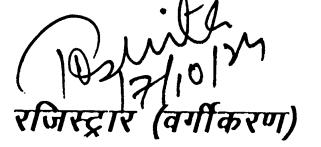 17/10/24
रजिस्ट्रार (वर्गीकरण)